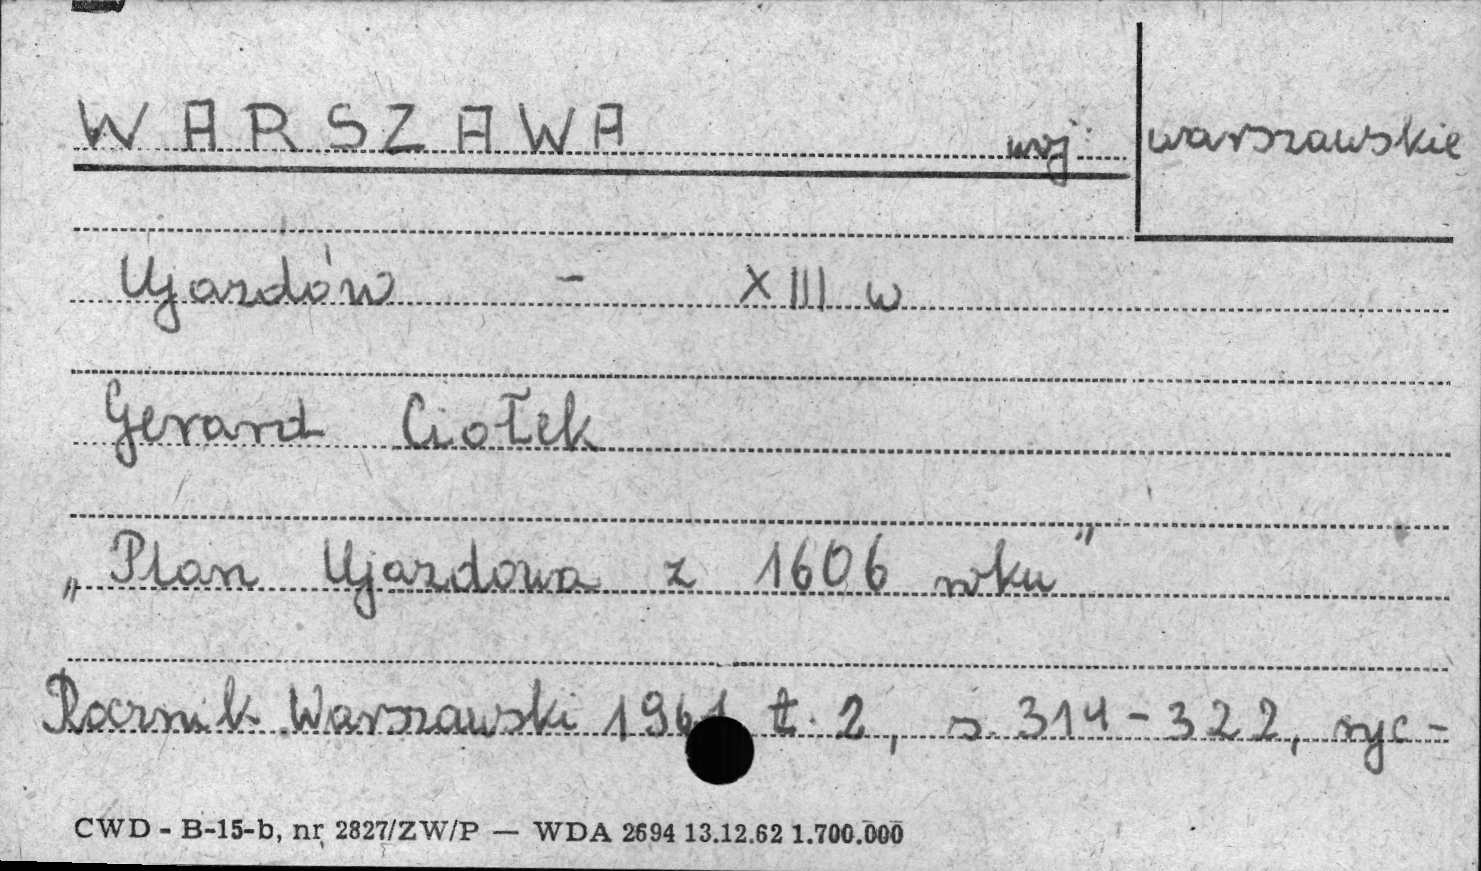 WARSZAWA woj. warszawskie
Ujazdów - XIII w
Gerard Ciołek
„Plan Ujazdowa z 1606 roku”
Rocznik Warszawski 1961 t. 2, s. 314-322, ryc-
CWD - B-15-b, nr 2827/ZW/P — WDA 2694 13.12.62 1.700.000